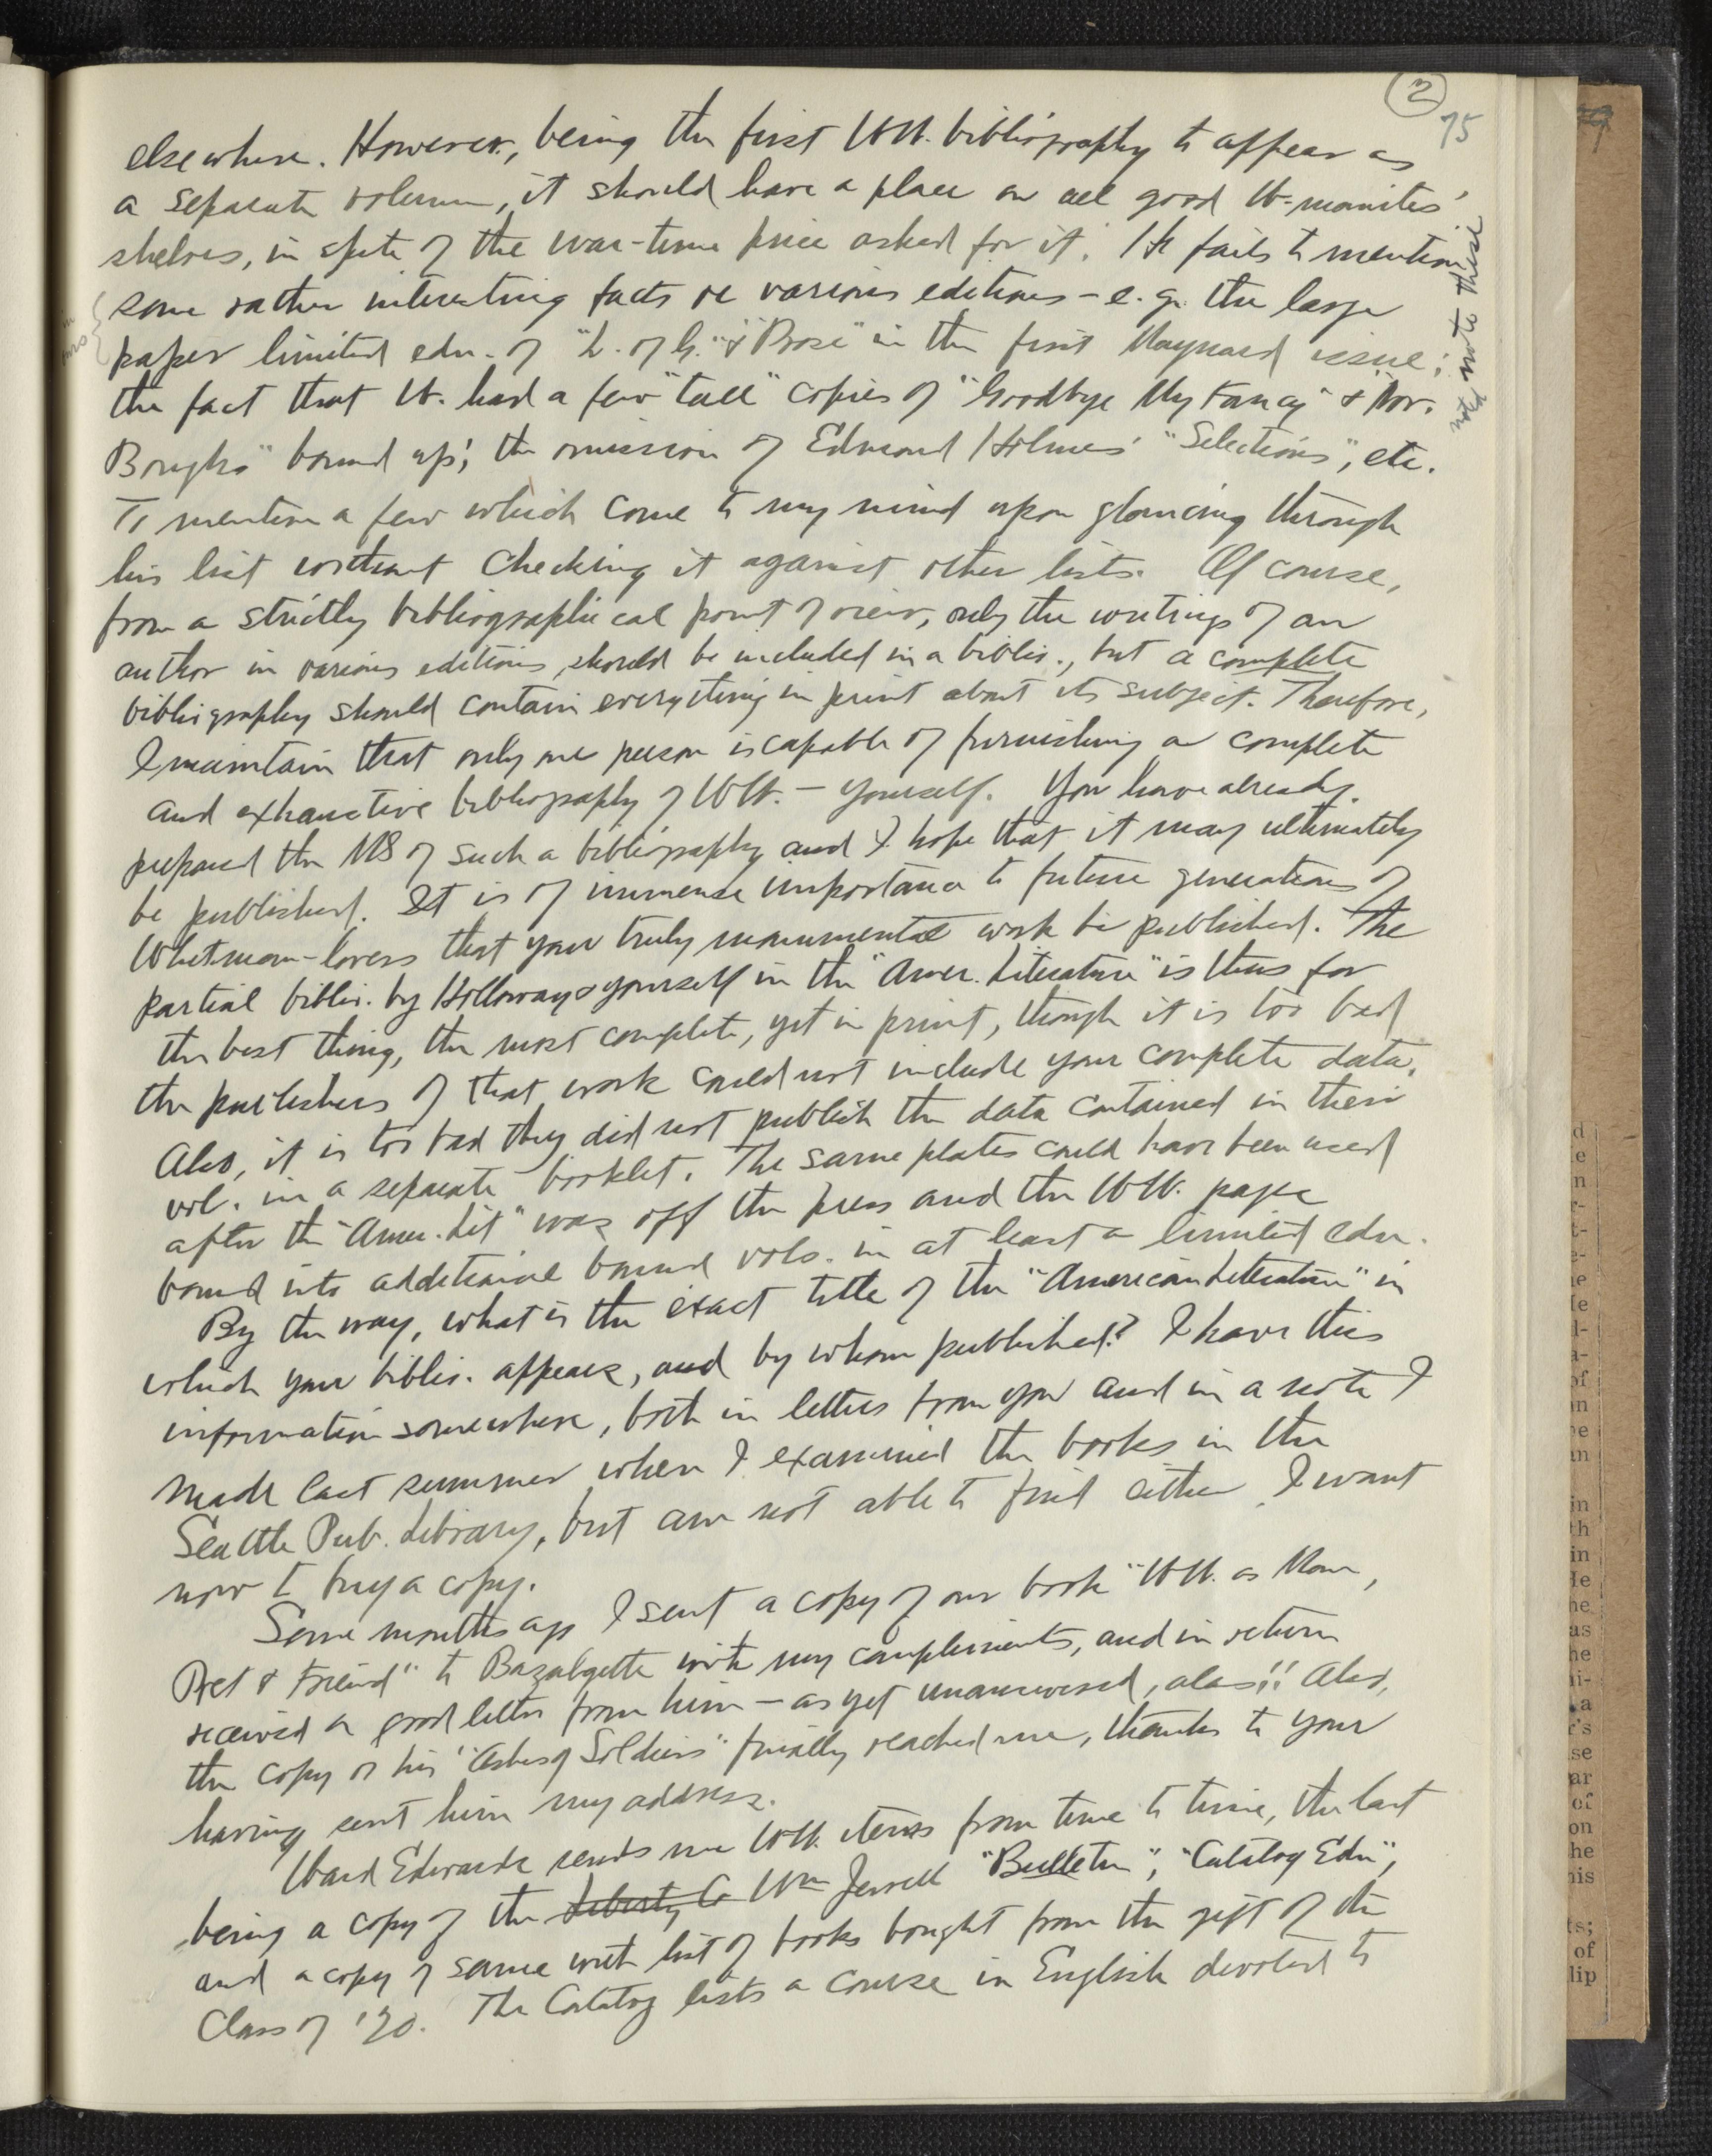 2
75
elsewhere. However, being the first WW. bibliography to appear as
a separate volume, it should have a place on all good W-manites'
shelves, in spite of the war-time price asked for it. He fails to mention
some rather interesting facts re various editions - e.g. the large
paper limited edn. of "L. of G." & "Prose" in the first Maynard issue;
the fact that W. had a few "tall" copies of "Goodbye My Fancy" & "Nov.
Boughs" bound up; the omission of Edmond Holmes' "Selections", etc.
To mention a few which come to my mind upon glancing through
his list without checking it against other lists. Of course,
from a strictly bibliographical point of view, only the writings of an
author in various editions, should be included in a biblio., but a complete
bibliography should contain everything in print about its subject. Therefore,
I maintain that only one person is capable of furnishing a complete
and exhaustive bibliography of WW. - yourself. You have already
prepared the MS of such a bibliography and I hope that it may ultimately
be published. It is of immense importance to future generations of
Whitman-lovers that your truly monumental work be published. The
partial biblio. by Holloway & yourself in the "Amer. Literature" is thus far
the best thing, the most complete, yet in print, though it is too bad
the publishers of that work could not include your complete data.
Also, it is too bad they did not publish the data contained in their
vol. in a separate booklet. The same plates could have been used
after the "Amer. Lit" was off the press and the WW. pages
bound into additional bound vols. in at least a limited edn.
By the way, what is the exact title of the "American Literature" in
which your biblio. appears, and by whom published? I have this
information somewhere, both in letters from you and in a note I
made last summer when I examined the books in the
Seattle Pub. Library, but am not able to find either. I want
now to buy a copy.
Some months ago I sent a copy of our book "WW. as Man,
Poet & Friend" to Bazalgette with my compliments, and in return
received a good letter from him - as yet unanswered, alas!! Also,
the copy of his "Ashes of Soldiers" finally reached me, thanks to your
having sent him my address.
Ward Edwards sends me WW. items from time to time, the last
being a copy of the Liberty Co Wm Jewell "Bulletin", "Catalog Edn",
and a copy of same with list of books bought from the gift of the
Class of '20. The Catalog lists a course in English devoted to
noted note these